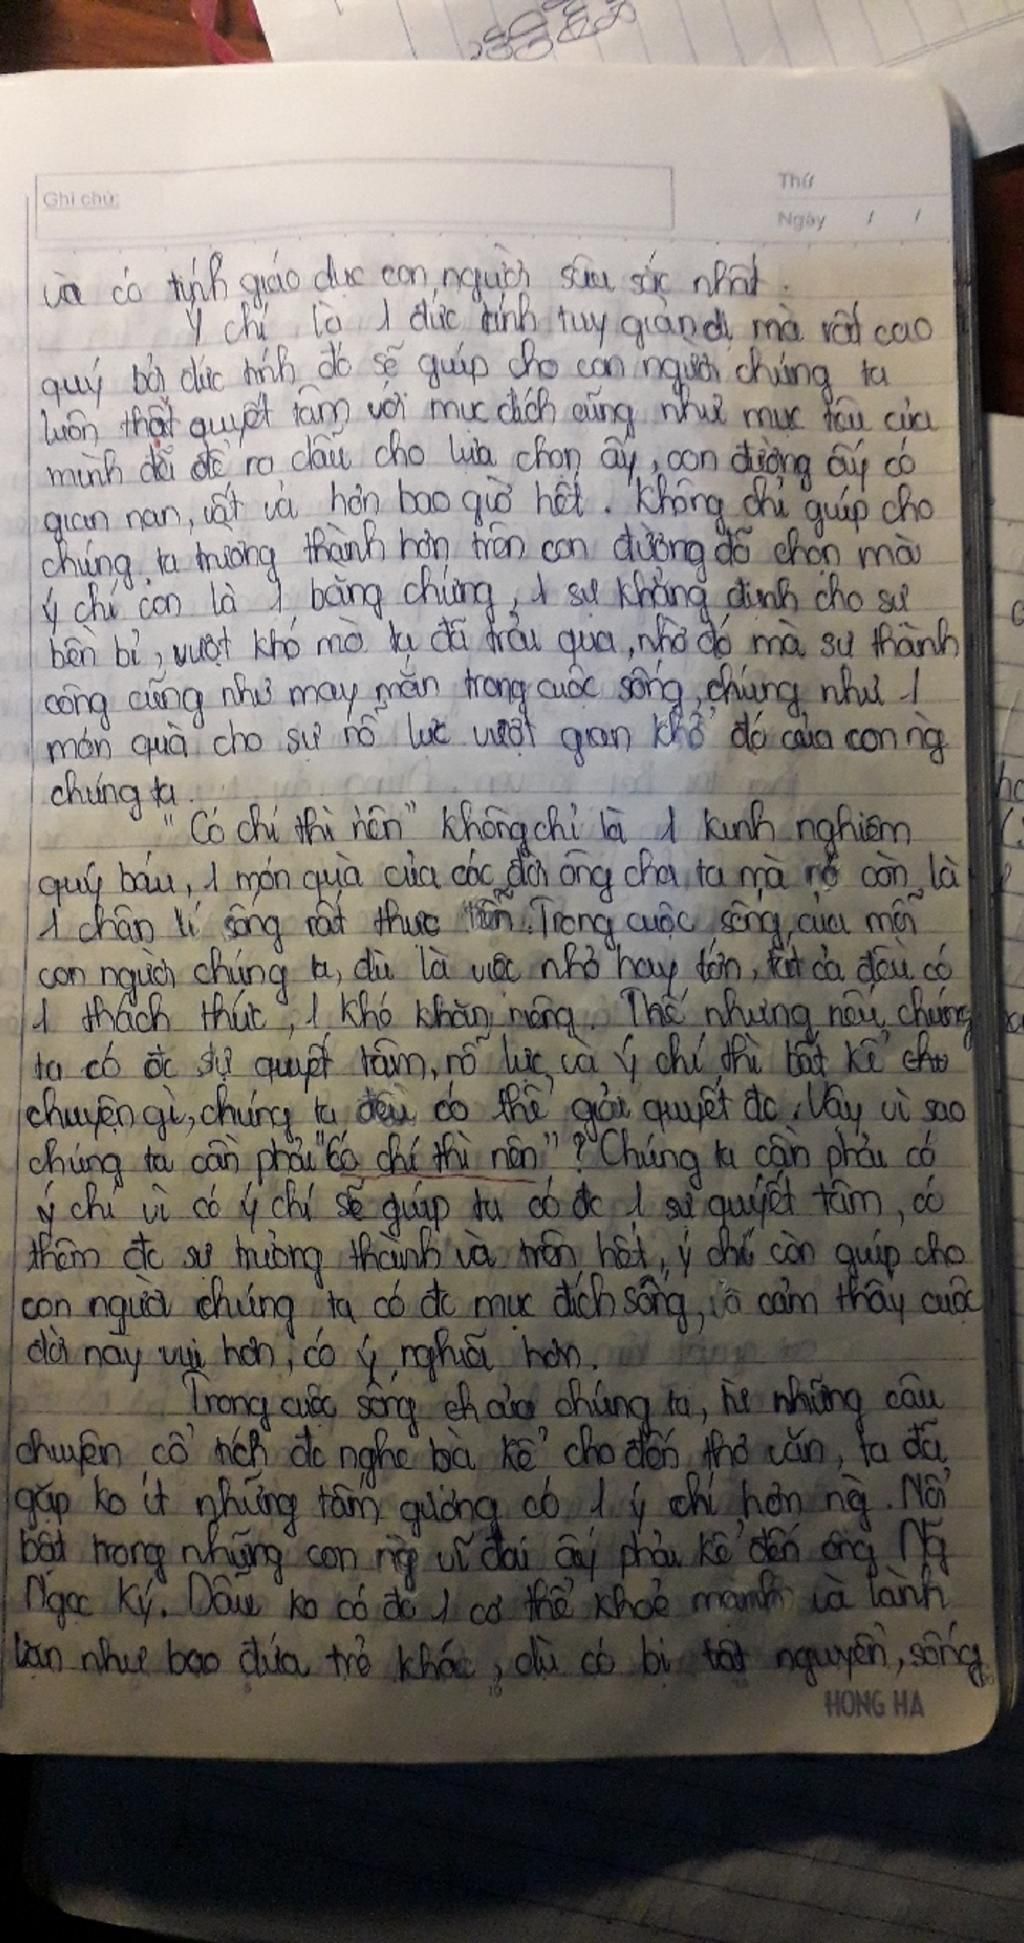 Ghi chú:
Thứ
Ngày / /
và có tính giáo dục con người sâu sắc nhất.
Ý chí là 1 đức tính tuy giản dị mà rất cao
quý bởi đức tính đó sẽ giúp cho con người chúng ta
luôn thật quyết tâm với mục đích cũng như mục tiêu của
mình đã đề ra dẫu cho lựa chọn ấy, con đường ấy có
gian nan, vất vả hơn bao giờ hết. Không chỉ giúp cho
chúng ta trưởng thành hơn trên con đường đã chọn mà
ý chí còn là 1 bằng chứng, 1 sự khẳng định cho sự
bền bỉ, vượt khó mà ta đã trải qua, nhờ đó mà sự thành
công cũng như may mắn trong cuộc sống, chúng như 1
món quà cho sự nỗ lực vượt gian khổ đó của con ng
chúng ta.
"Có chí thì nên" không chỉ là 1 kinh nghiệm
quý báu, 1 món quà của các đời ông cha ta mà nó còn là
1 chân lí sống rất thực tiễn. Trong cuộc sống của mỗi
con người chúng ta, dù là việc nhỏ hay lớn, tất cả đều có
1 thách thức, 1 khó khăn riêng. Thế nhưng nếu chúng
ta có đc sự quyết tâm, nỗ lực và ý chí thì bất kể cho
chuyện gì, chúng ta đều có thể giải quyết đc. Vậy vì sao
chúng ta cần phải "Có chí thì nên"? Chúng ta cần phải có
ý chí vì có ý chí sẽ giúp ta có đc 1 sự quyết tâm, có
thêm đc sự trưởng thành và trên hết, ý chí còn giúp cho
con người chúng ta có đc mục đích sống, và cảm thấy cuộc
đời này vui hơn, có ý nghĩa hơn.
Trong cuộc sống của chúng ta, từ những câu
chuyện cổ tích đc nghe bà kể cho đến thơ văn, ta đã
gặp ko ít những tấm gương có 1 ý chí hơn ng. Nổi
bật trong những con ng vĩ đại ấy phải kể đến ông Ng
Ngọc Ký. Dẫu ko có đc 1 cơ thể khoẻ mạnh và lành
lặn như bao đứa trẻ khác, dù có bị tật nguyền, sống
HONG HA